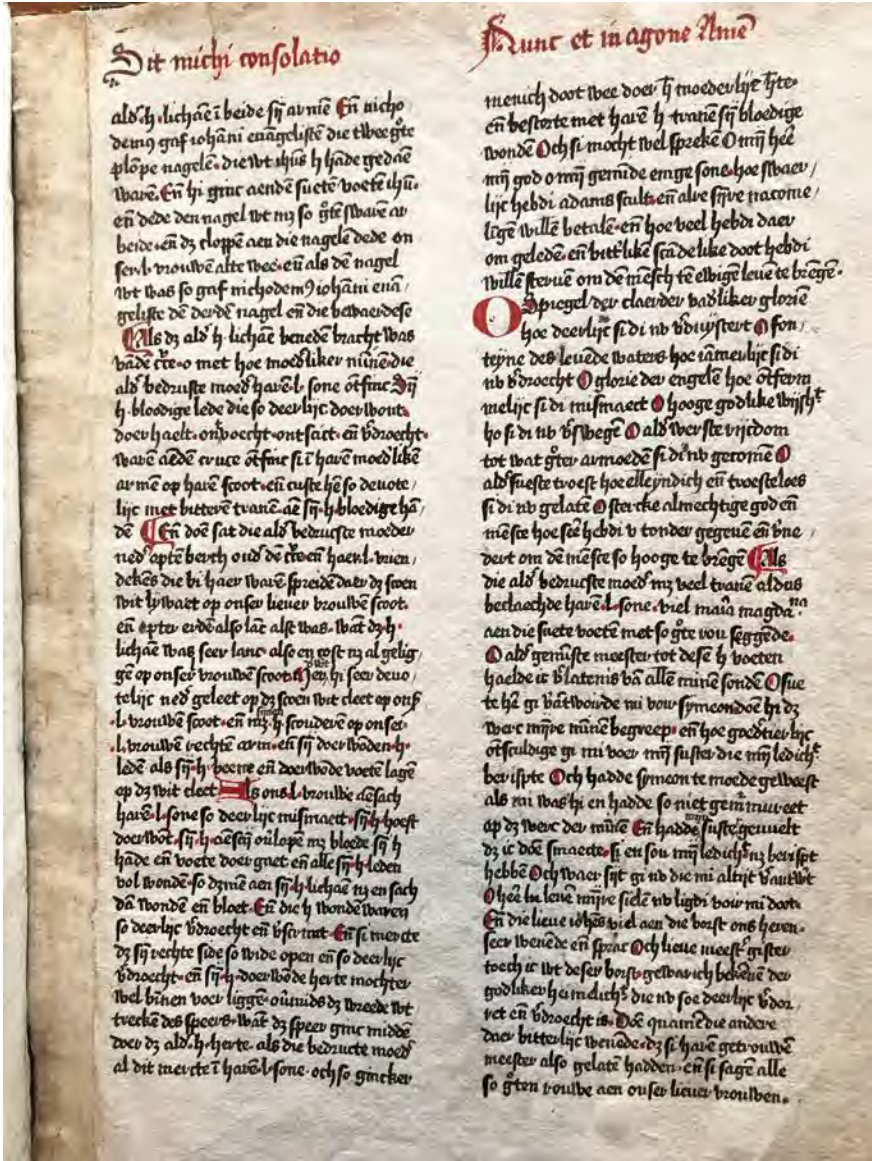 Sit michi consolatio
ald᷒ .h. lichāē ī beide sij armē En̄ nicho
demꝰ gaf iohāni euāgelistē die twee gͦte
plōpe nagelen. die wt ihūs h hādē gedāē
warē. En̄ hi ginc aendē suetē voetē ihū.
en̄ dede den nagel wt mʒ so gͦtē swarē ar
beide. en̄ dʒ cloppē aen die nagelē dede on
ser .l. vrouwē alte wee. en̄ als dē nagel
wt was so gaf nichodemꝰ iohāni euā/
geliste dē derdē nagel en̄ die bewaerdese
Als dʒ ald᷒ h. lichāē benedē bracht was
vādē cͬce. o met hoe moed᷒liker mīnē die
ald᷒ bedruste moed᷒ harē .l. sone ōtfinc Sij
h. bloedige lede die so deerlijc doerwout.
doerhaelt. en̄ voecht. ontsact. en̄ v᷒droecht.
warē āēdē cruce ōtfinc si ī harē moed᷒likē
armē op harē scoot. en̄ custe hē so deuote/
lijc met bitterē tranē. āē sij. h. bloedige hā/
dē En̄ doē sat die ald᷒ bedrucste moeder
ned᷒ opter berth ond᷒ dē cͬce en̄ haer .l. vrien/
dekēs die bi haer warē spreidē daer dʒ scoen
wit lywaet op onser lieuer vrouwē scoot.
en̄ opter erdē also lāc alst was. wāt dʒ .h.
lichāē was seer lanc also en gost nʒ al gelig/
gē op onser vrouwē scoot. Mer hi seer deuo/
telijc ned᷒ geleet op dʒ scoen wit cleet op ons᷒
.l. vrouwē scoot. en̄ mʒ .h. scouderen op onser
.l. vrouwē rechtē arm. en̄ sij doerwōdē .h.
ledē als sij .h. beene en̄ doerwōde voetē lagē
op dʒ wit cleet Als ons .l. vrouwe āēsach
harē .l. sone so deerlijc mismaect. sij .h. hoeft
doerwōt. sij .h. āēsicht ou᷒lopē mʒ bloede sij h
hādē en̄ voetē doergaet en̄ alle sij .h. leden
vol wondē. so dʒmē aen sij .h. lichāē nʒ en sach
dā wondē en̄ bloet. En̄ die h wondē waren
so deerlijc v᷒droecht en̄ v᷒scrmt. En̄ si mercte
dʒ sij rechte side so wide open en̄ so deerlijc
v᷒droecht. en̄ sij .h. doerwōde herte mochter
wel bīnen voer liggē. ou᷒mids dʒ wreede wt
treckē des speers. wāt dʒ speer ginc middē
doer dʒ ald᷒ .h. herte. als die bedructe moed᷒
al dit mercte ī harē .l. sone. och so gincker
Nunc et in agone Amē
menich doot wee doer h̄ moederlijc h̄te.
en̄ bestorte met harē h tranē sij bloedige
wondē Och si mocht wel sprekē O mij hee᷒
mij god o mij gemīde enige sone. hoe swaer/
lijc hebdi adams scult. en̄ alre sijre nacome/
līgē willē betalē. en̄ hoe veel hebdi daer
om geledē. en̄ bitt᷒like scādelike doot hebdi
willē steruē om dē mēsch tē ewigē leuē te brēgē.
O Spiegel der claerder vad᷒liker gloriē
hoe deerlijc si di nv v᷒duystert O fon/
teyne des leuēde waters hoe iāmerlijc si di
nv v᷒droecht O glorie der engelē hoe ōtferm
melijc si di mismaect O hooge godlike wijsht᷒
ho si di nv v᷒swegē O ald᷒ werste vricdom
tot wat gͦter armoedē si di nv gecomē O
ald᷒ sueste troest hoe elleyndich en̄ troesteloes
si di nv gelatē O stercke almechtige god en̄
mēsce hoe see᷒ hebdi v tonder gegeuē en̄ v᷒ne/
dert om dē mēsce so hooge te brēgē Als
die ald᷒ bedrucste moed᷒ mʒ veel tranē aldus
beclaechde harē .l. sone. viel maria magdaⁿᵃ
aen die suete voetē met so gͦte rou seggēde.
O ald᷒ gemīste meester tot dese h voeten
haelde ic v᷒latenis vā allē minē sondē O sue
te hē gi v᷒ātwoirde mi voir symeon doē hi dʒ
werc mijre mīnē begreep. en̄ hoe goedtierlijc
ōtsculdige gi mi voer mij suster die mij ledicht᷒
berispte Och hadde symeon te moede geweest
als mi was hi en hadde so niet gemurmureet
op dʒ werc der mīnē En̄ hadde mijn suster geuuelt
dʒ ic doē smaecte. si en sou mij ledicht᷒ nʒ berispt
hebbē Och waer sijt gi nv die mi altijt v᷒antwt
O hee᷒ en leuē mijre sielē nv ligdi voir mi doot.
En̄ die lieue iohēs viel aen die borst ons heren.
seer wenēde en̄ sprac Och lieue meest᷒ gister
toech ic wt deser borst gewarich bekēnē der
godliker heimelicht᷒ die nv soe deerlijc v᷒dor/
ret en̄ v᷒droecht is. Doē quamē die andere
daer bitterlijc wenēde. dʒ si harē getrouwē
meester also gelatē hadden. en̄ si sagē alle
so gͦten rouwe aen onser lieuer vrouwen.